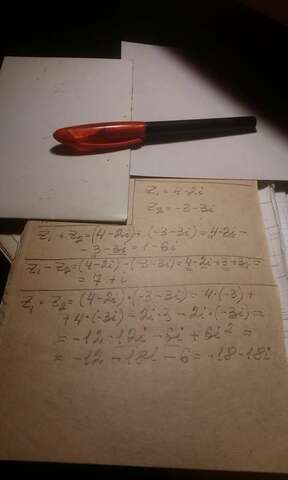 z₁=4-2i
z₂=-3-3i
z₁+z₂=(4-2i)+(-3-3i)=4-2i-
-3-3i=1-6i
z₁-z₂=(4-2i)-(-3-3i)=4-2i+3+3i=
=7+i
z₁·z₂=(4-2i)·(-3-3i)=4·(-3)+
+4·(-3i)-2i·3-2i·(-3i)=
=-12-12i-6i+6i²=
=-12-18i-6=-18-18i